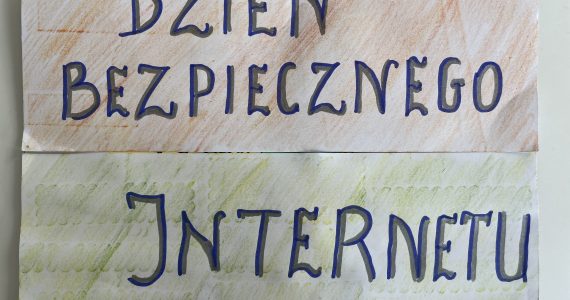 DZIEŃ
BEZPIECZNEGO
INTERNETU